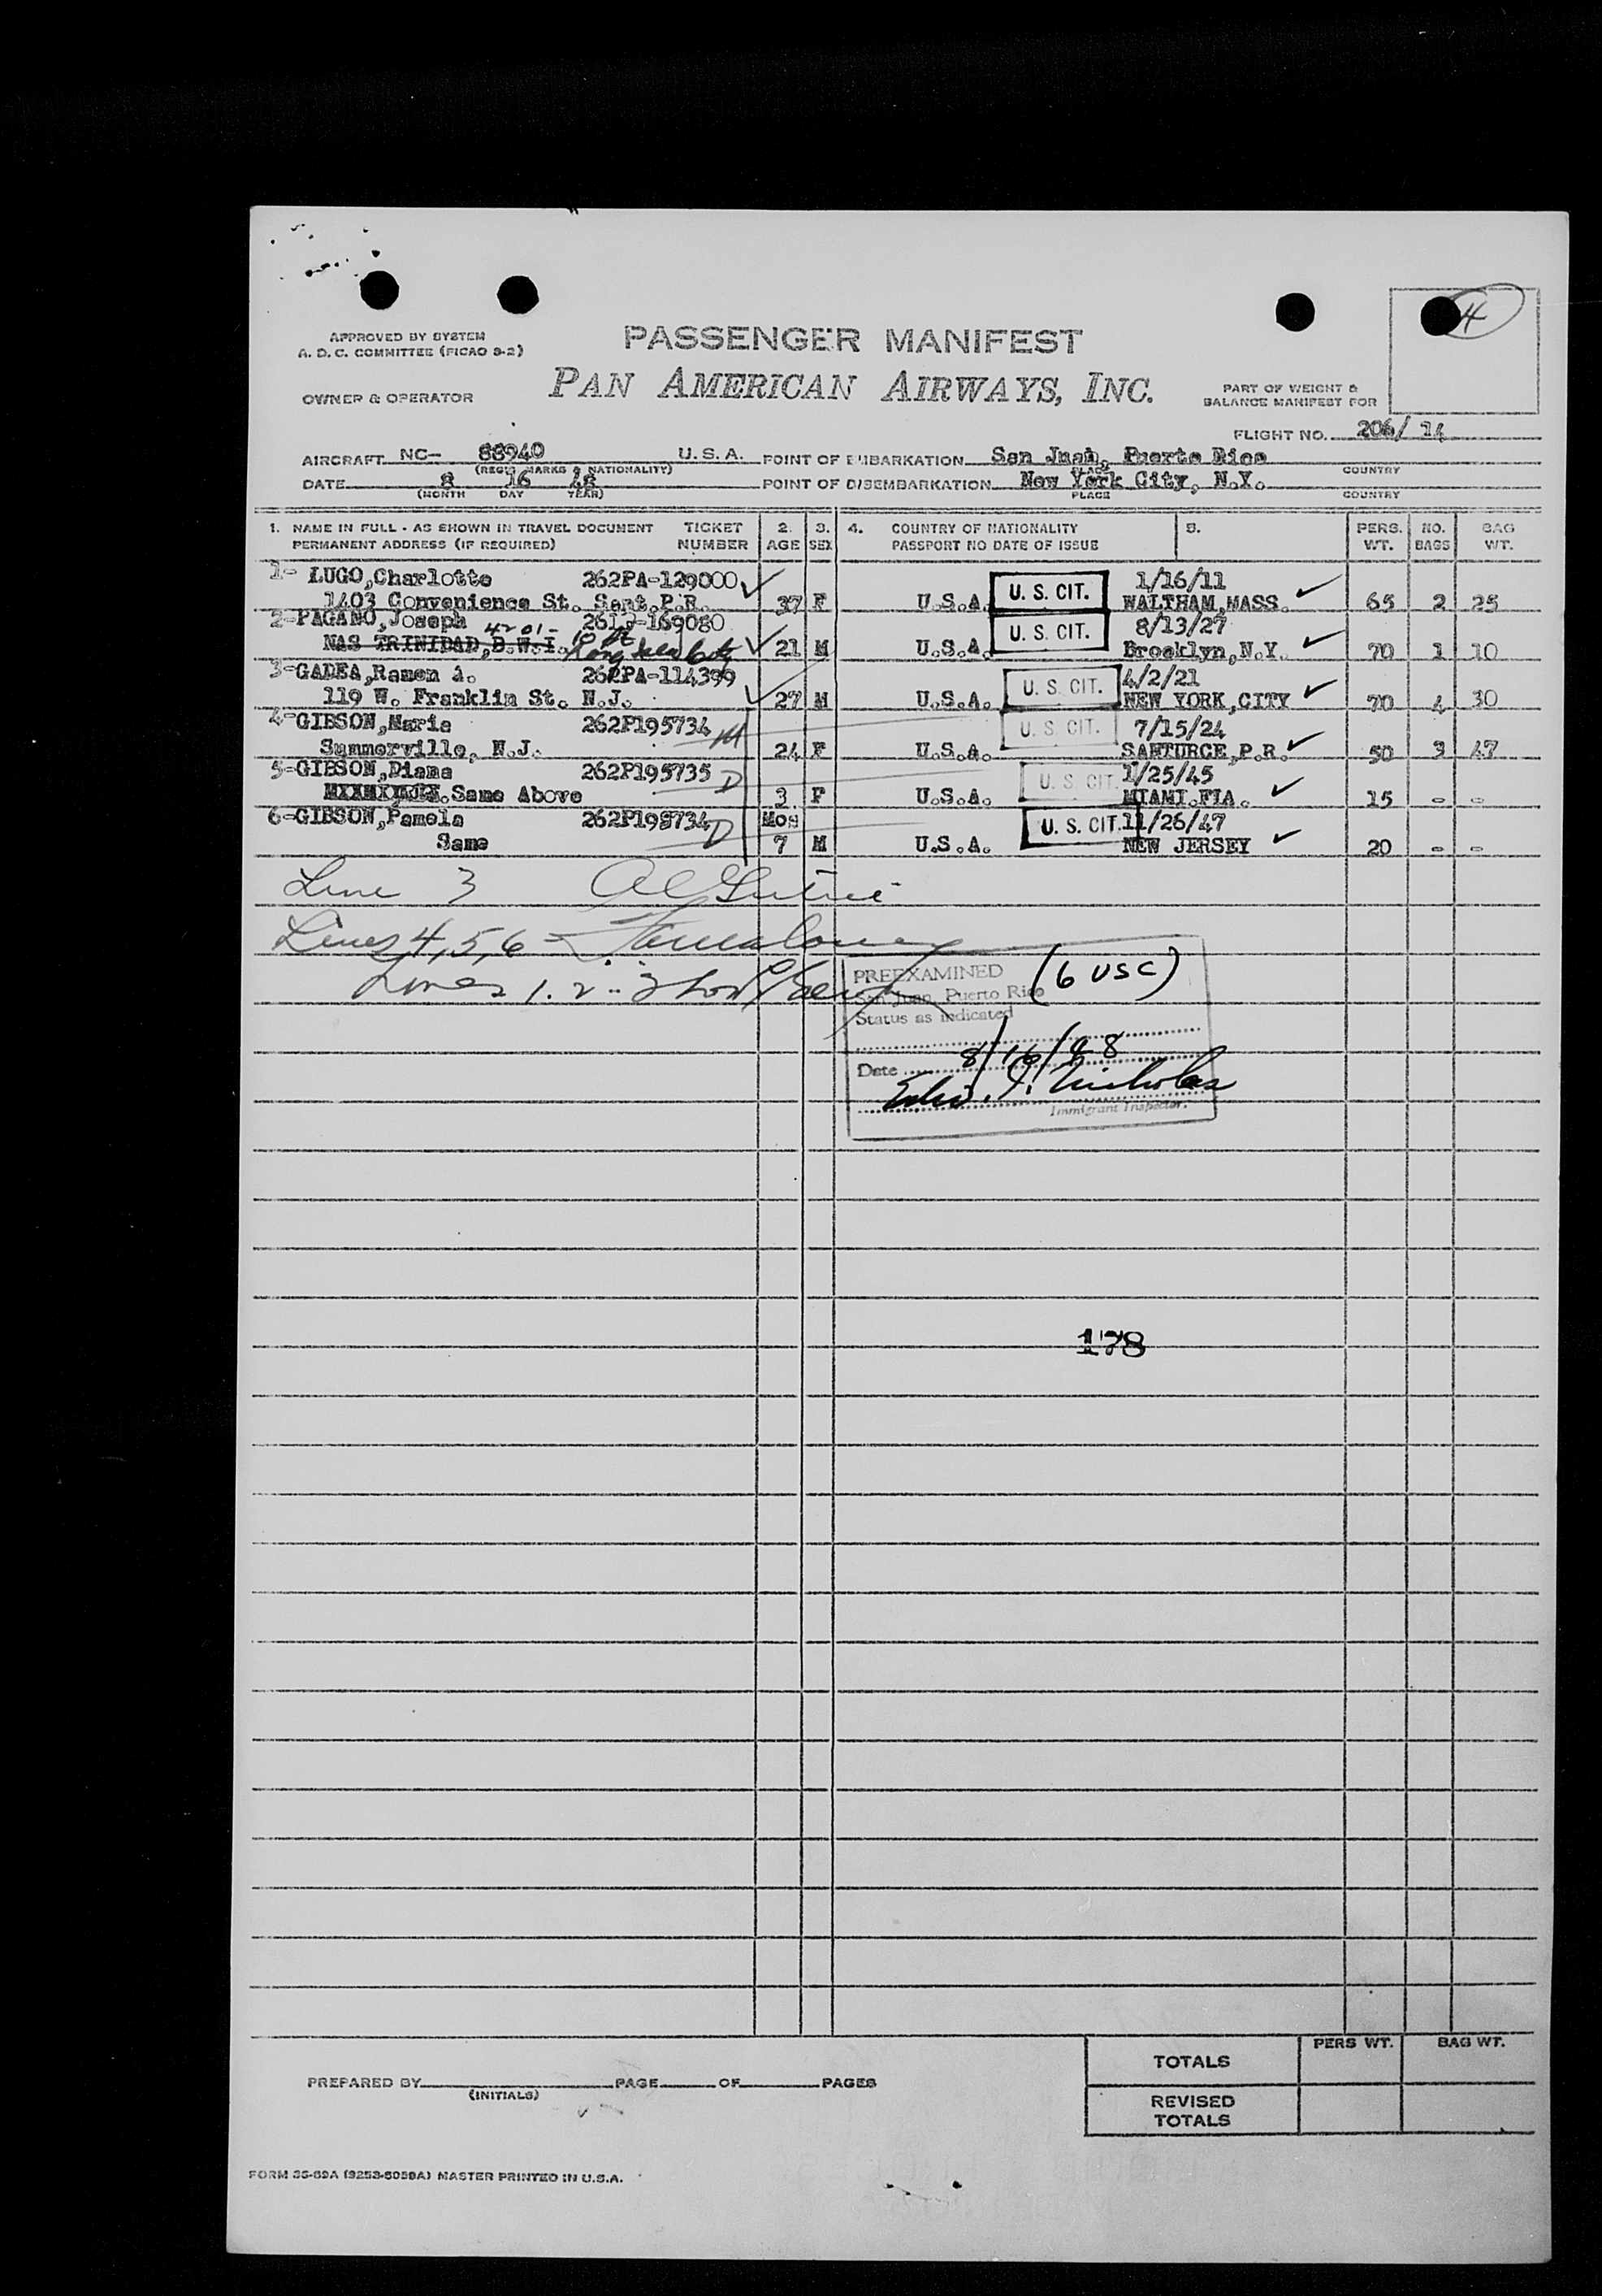 4
APPROVED BY SYSTEM
A. D. C. COMMITTEE (PICAO 9-2)
PASSENGER MANIFEST
OWNER & OPERATOR
PAN AMERICAN AIRWAYS, INC.
PART OF WEIGHT &
BALANCE MANIFEST FOR
FLIGHT NO. 206/ 14
AIRCRAFT NC- 88940 U. S. A. POINT OF EMBARKATION San Juan, Puerto Rico
(REG'N MARKS & NATIONALITY) PLACE COUNTRY
DATE 8 16 48 POINT OF DISEMBARKATION New York City, N.Y.
(MONTH DAY YEAR) PLACE COUNTRY
1. NAME IN FULL - AS SHOWN IN TRAVEL DOCUMENT TICKET 2. 3. 4. COUNTRY OF NATIONALITY 5. PERS. NO. BAG
PERMANENT ADDRESS (IF REQUIRED) NUMBER AGE SEX PASSPORT NO DATE OF ISSUE WT. BAGS WT.
1- LUGO,Charlotte 262PA-129000 U. S. CIT. 1/16/11
1403 Convenience St. Sant.P.R. 37 F U.S.A. WALTHAM,MASS. 65 2 25
2-PAGANO,Joseph U. S. CIT. 8/13/27
NAS TRINIDAD,B.W.I. 4201- 10 St 21 M U.S.A. Brooklyn,N.Y. 70 1 10
3-GADEA,Ramon A. 262PA-114399 U. S. CIT. 4/2/21
119 W. Franklin St. N.J. 27 M U.S.A. NEW YORK,CITY 70 4 30
4-GIBSON,Marie 262P195734 M U. S. CIT. 7/15/24
Summerville, N.J. 24 F U.S.A. SANTURCE,P.R. 50 3 47
5-GIBSON,Diana 262P195735 D U. S. CIT. 1/25/45
Same Above 3 F U.S.A. MIAMI.FLA. 15 - -
6-GIBSON,Pamela 262P198734 D Mos U. S. CIT. 11/26/47
Same 7 M U.S.A. NEW JERSEY 20 - -
Line 3
Lines 4,5,6 -
Lines 1. 2
PREEXAMINED (6 USC)
San Juan, Puerto Rico
Status as indicated
Date 8/16/48
Edw. J. Nicholas
Immigrant Inspector.
178
TOTALS PERS WT. BAG WT.
PREPARED BY PAGE OF PAGES
(INITIALS)
REVISED
TOTALS
FORM 35-69A (9253-5059A) MASTER PRINTED IN U.S.A.